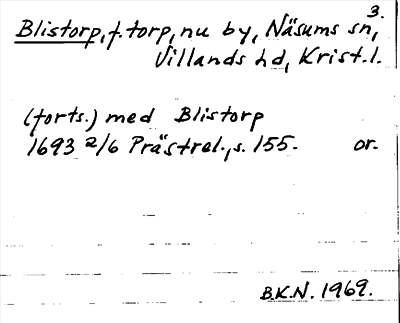 3.
Blistorp, f. torp, nu by, Näsums sn,
Villands hd, Krist. l.
(forts.) med Blistorp
1693 2/6 Prästrel., s. 155. or.
B.K.N. 1969.